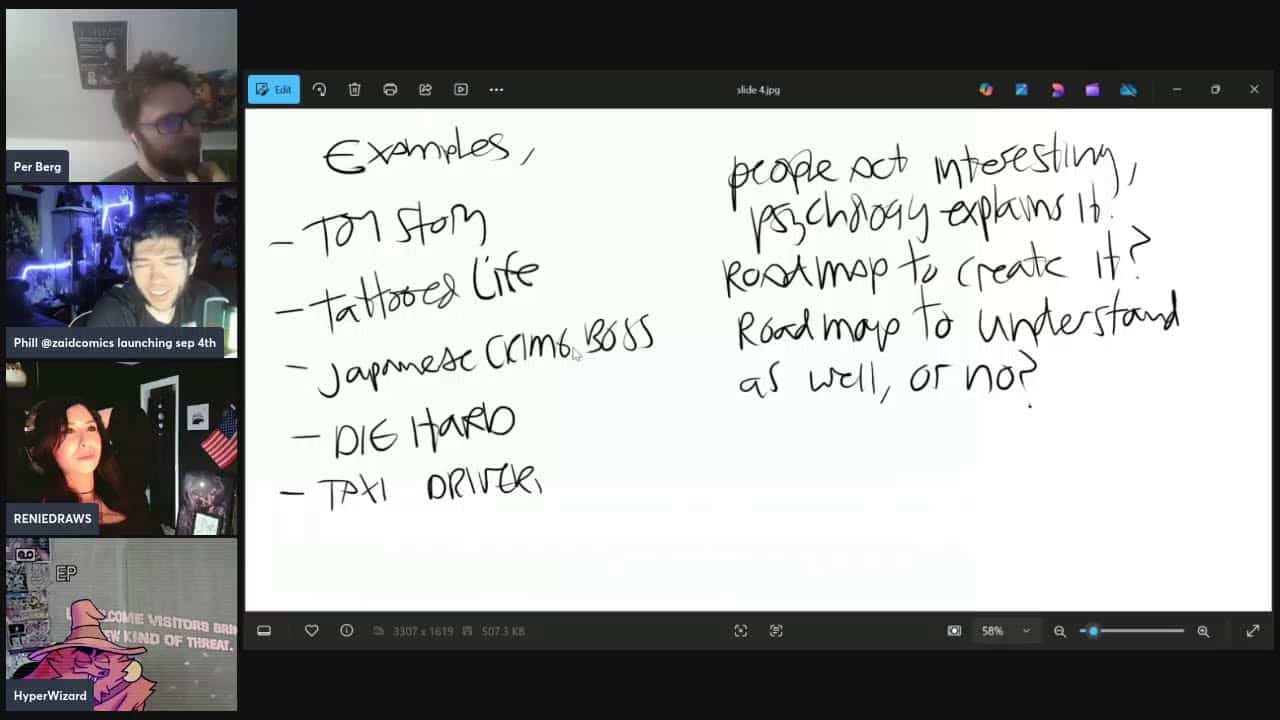 Per Berg
Phill @zaidcomics launching sep 4th
RENIEDRAWS
EP
COME VISITORS BRIN
EW KIND OF THREAT.
HyperWizard
Edit
slide 4.jpg
Examples,
- TOY Story
- Tattooed Life
- Japanese Crime Boss
- DIE HARD
- TAXI DRIVER,
people act interesting,
psychology explains it.
Roadmap to create it?
Roadmap to understand
as well, or no?
3307 x 1619
507.3 KB
58%